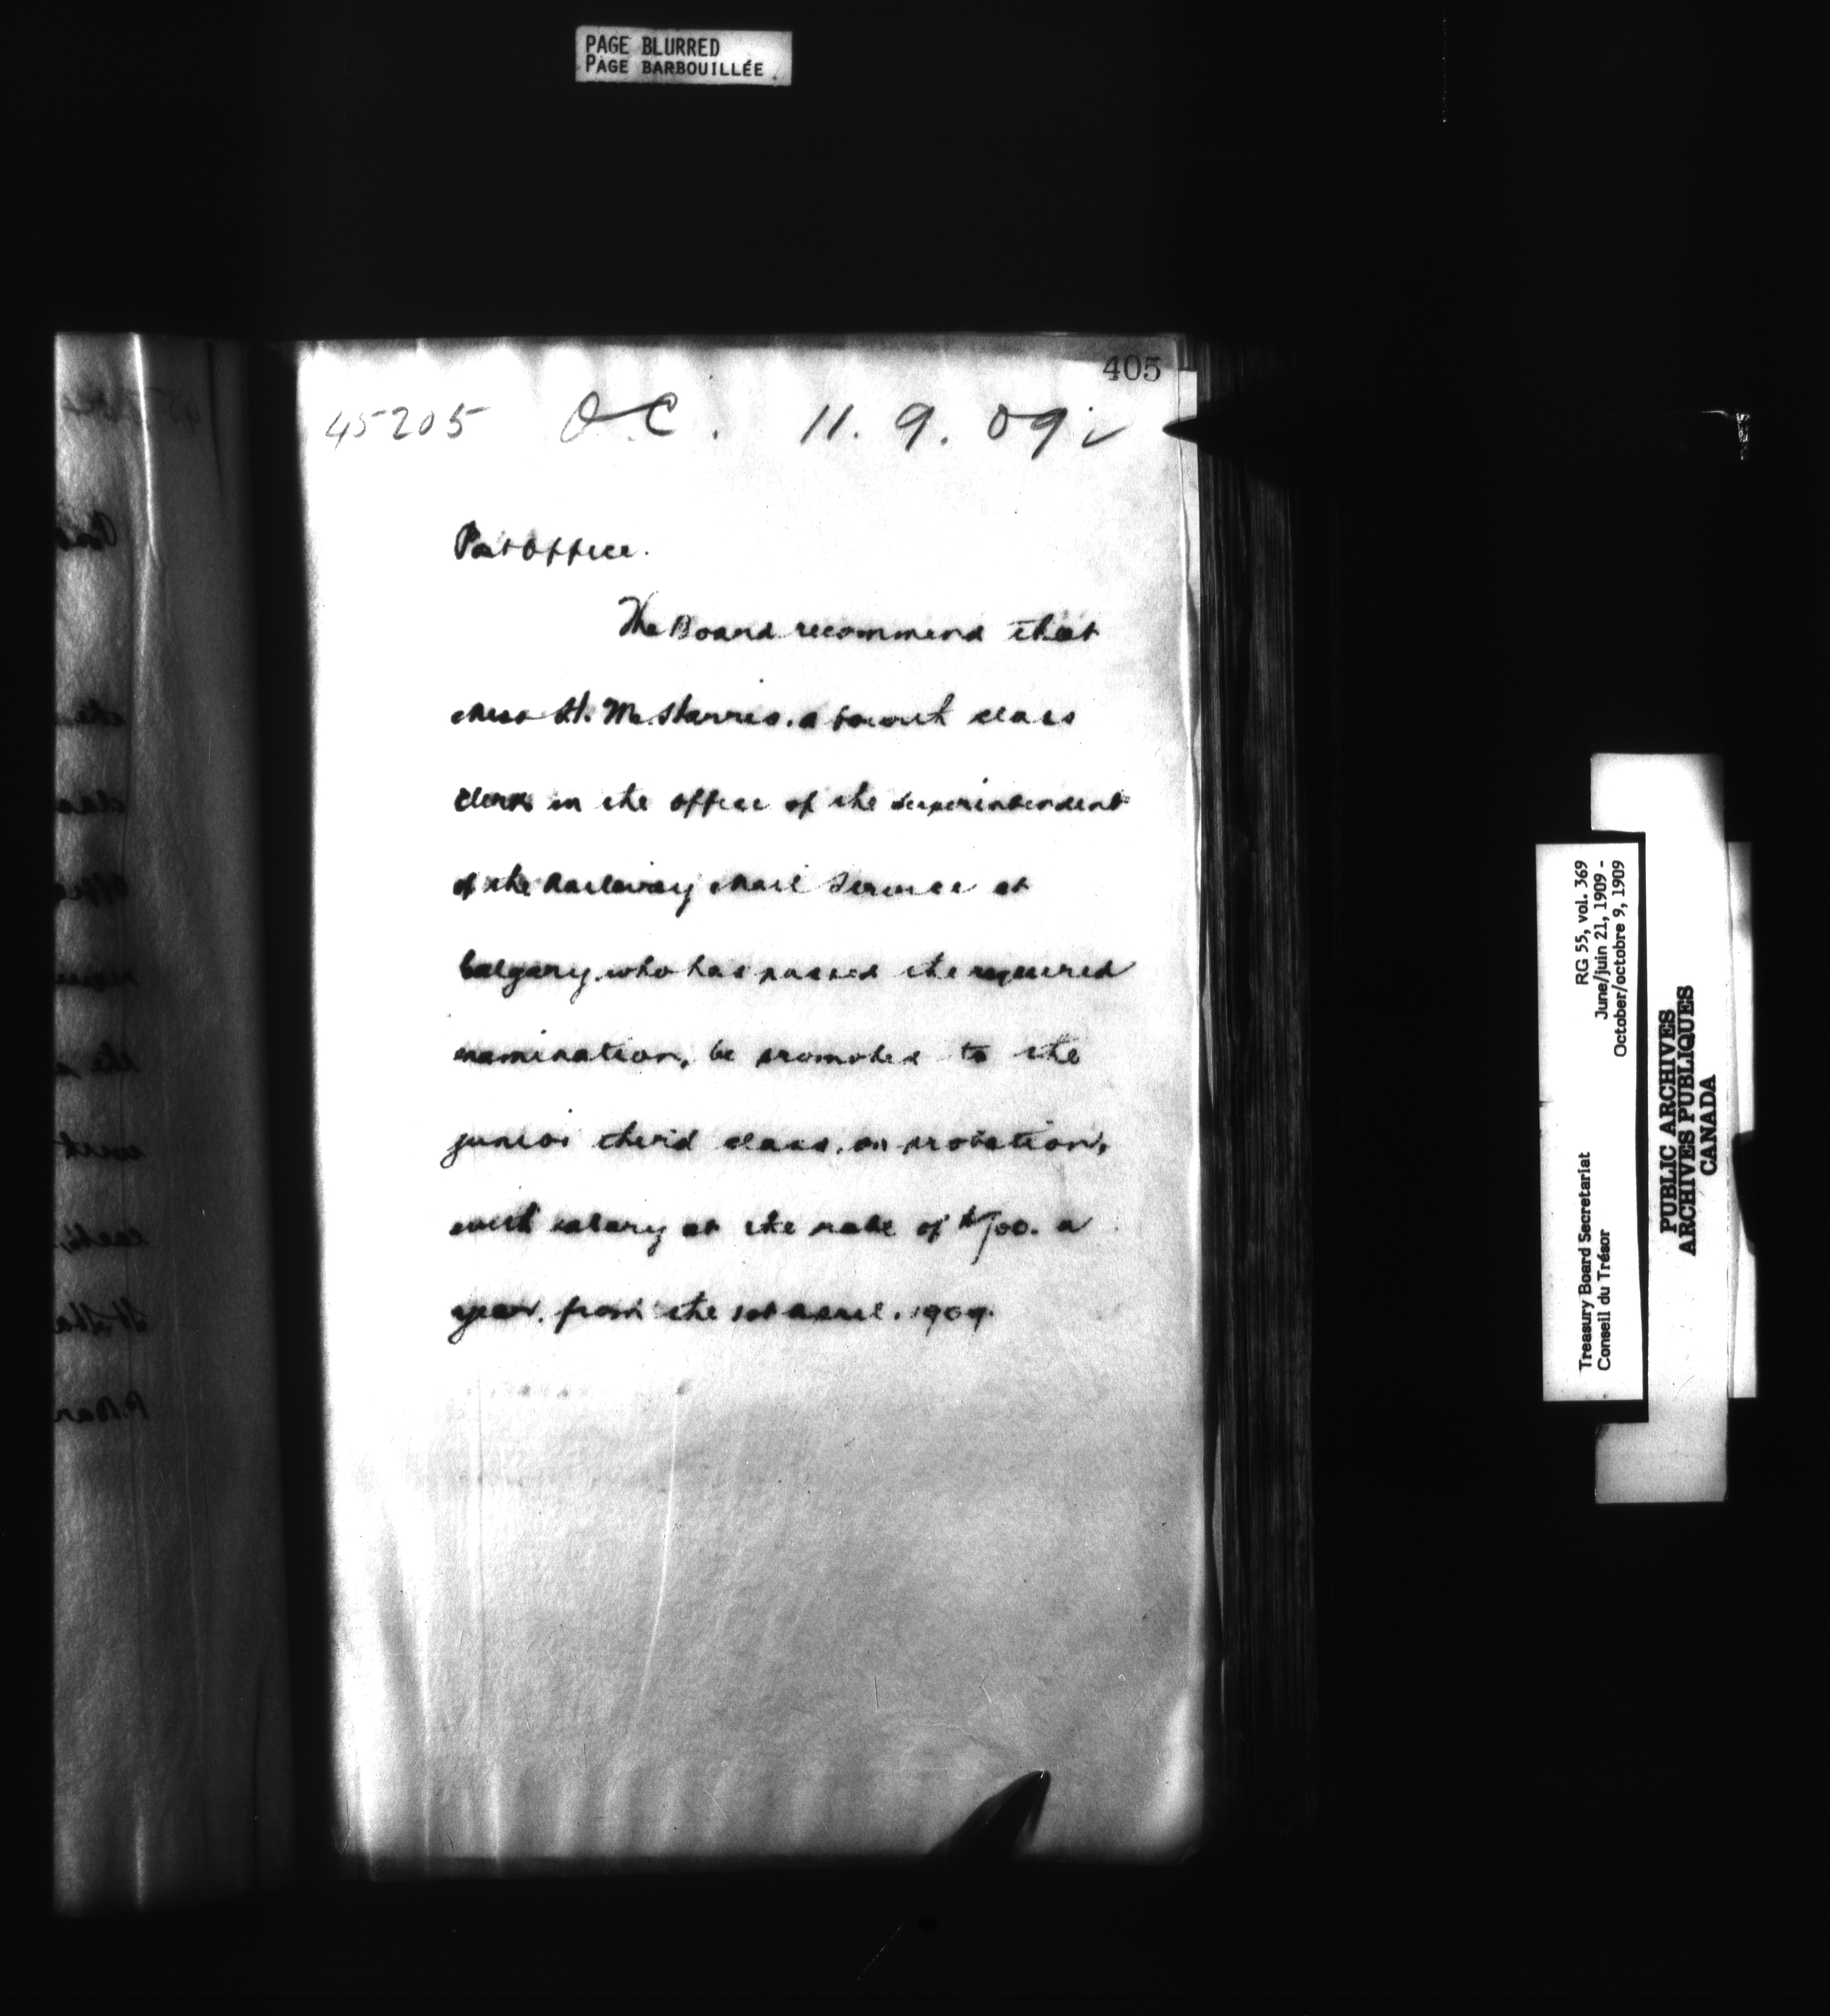 PAGE BLURRED
PAGE BARBOUILLÉE
405
45205 O.C. 11. 9. 09
Post Office.
The Board recommend that
Miss H. M. Harris, a fourth class
clerk in the office of the Superintendent
of the Railway Mail Service at
Calgary, who has passed the required
examination, be promoted to the
junior third class, on probation,
with salary at the rate of $700. a
year, from the 1st April, 1909.
RG 55, vol. 369
June/juin 21, 1909 -
October/octobre 9, 1909
Treasury Board Secretariat
Conseil du Trésor
PUBLIC ARCHIVES
ARCHIVES PUBLIQUES
CANADA